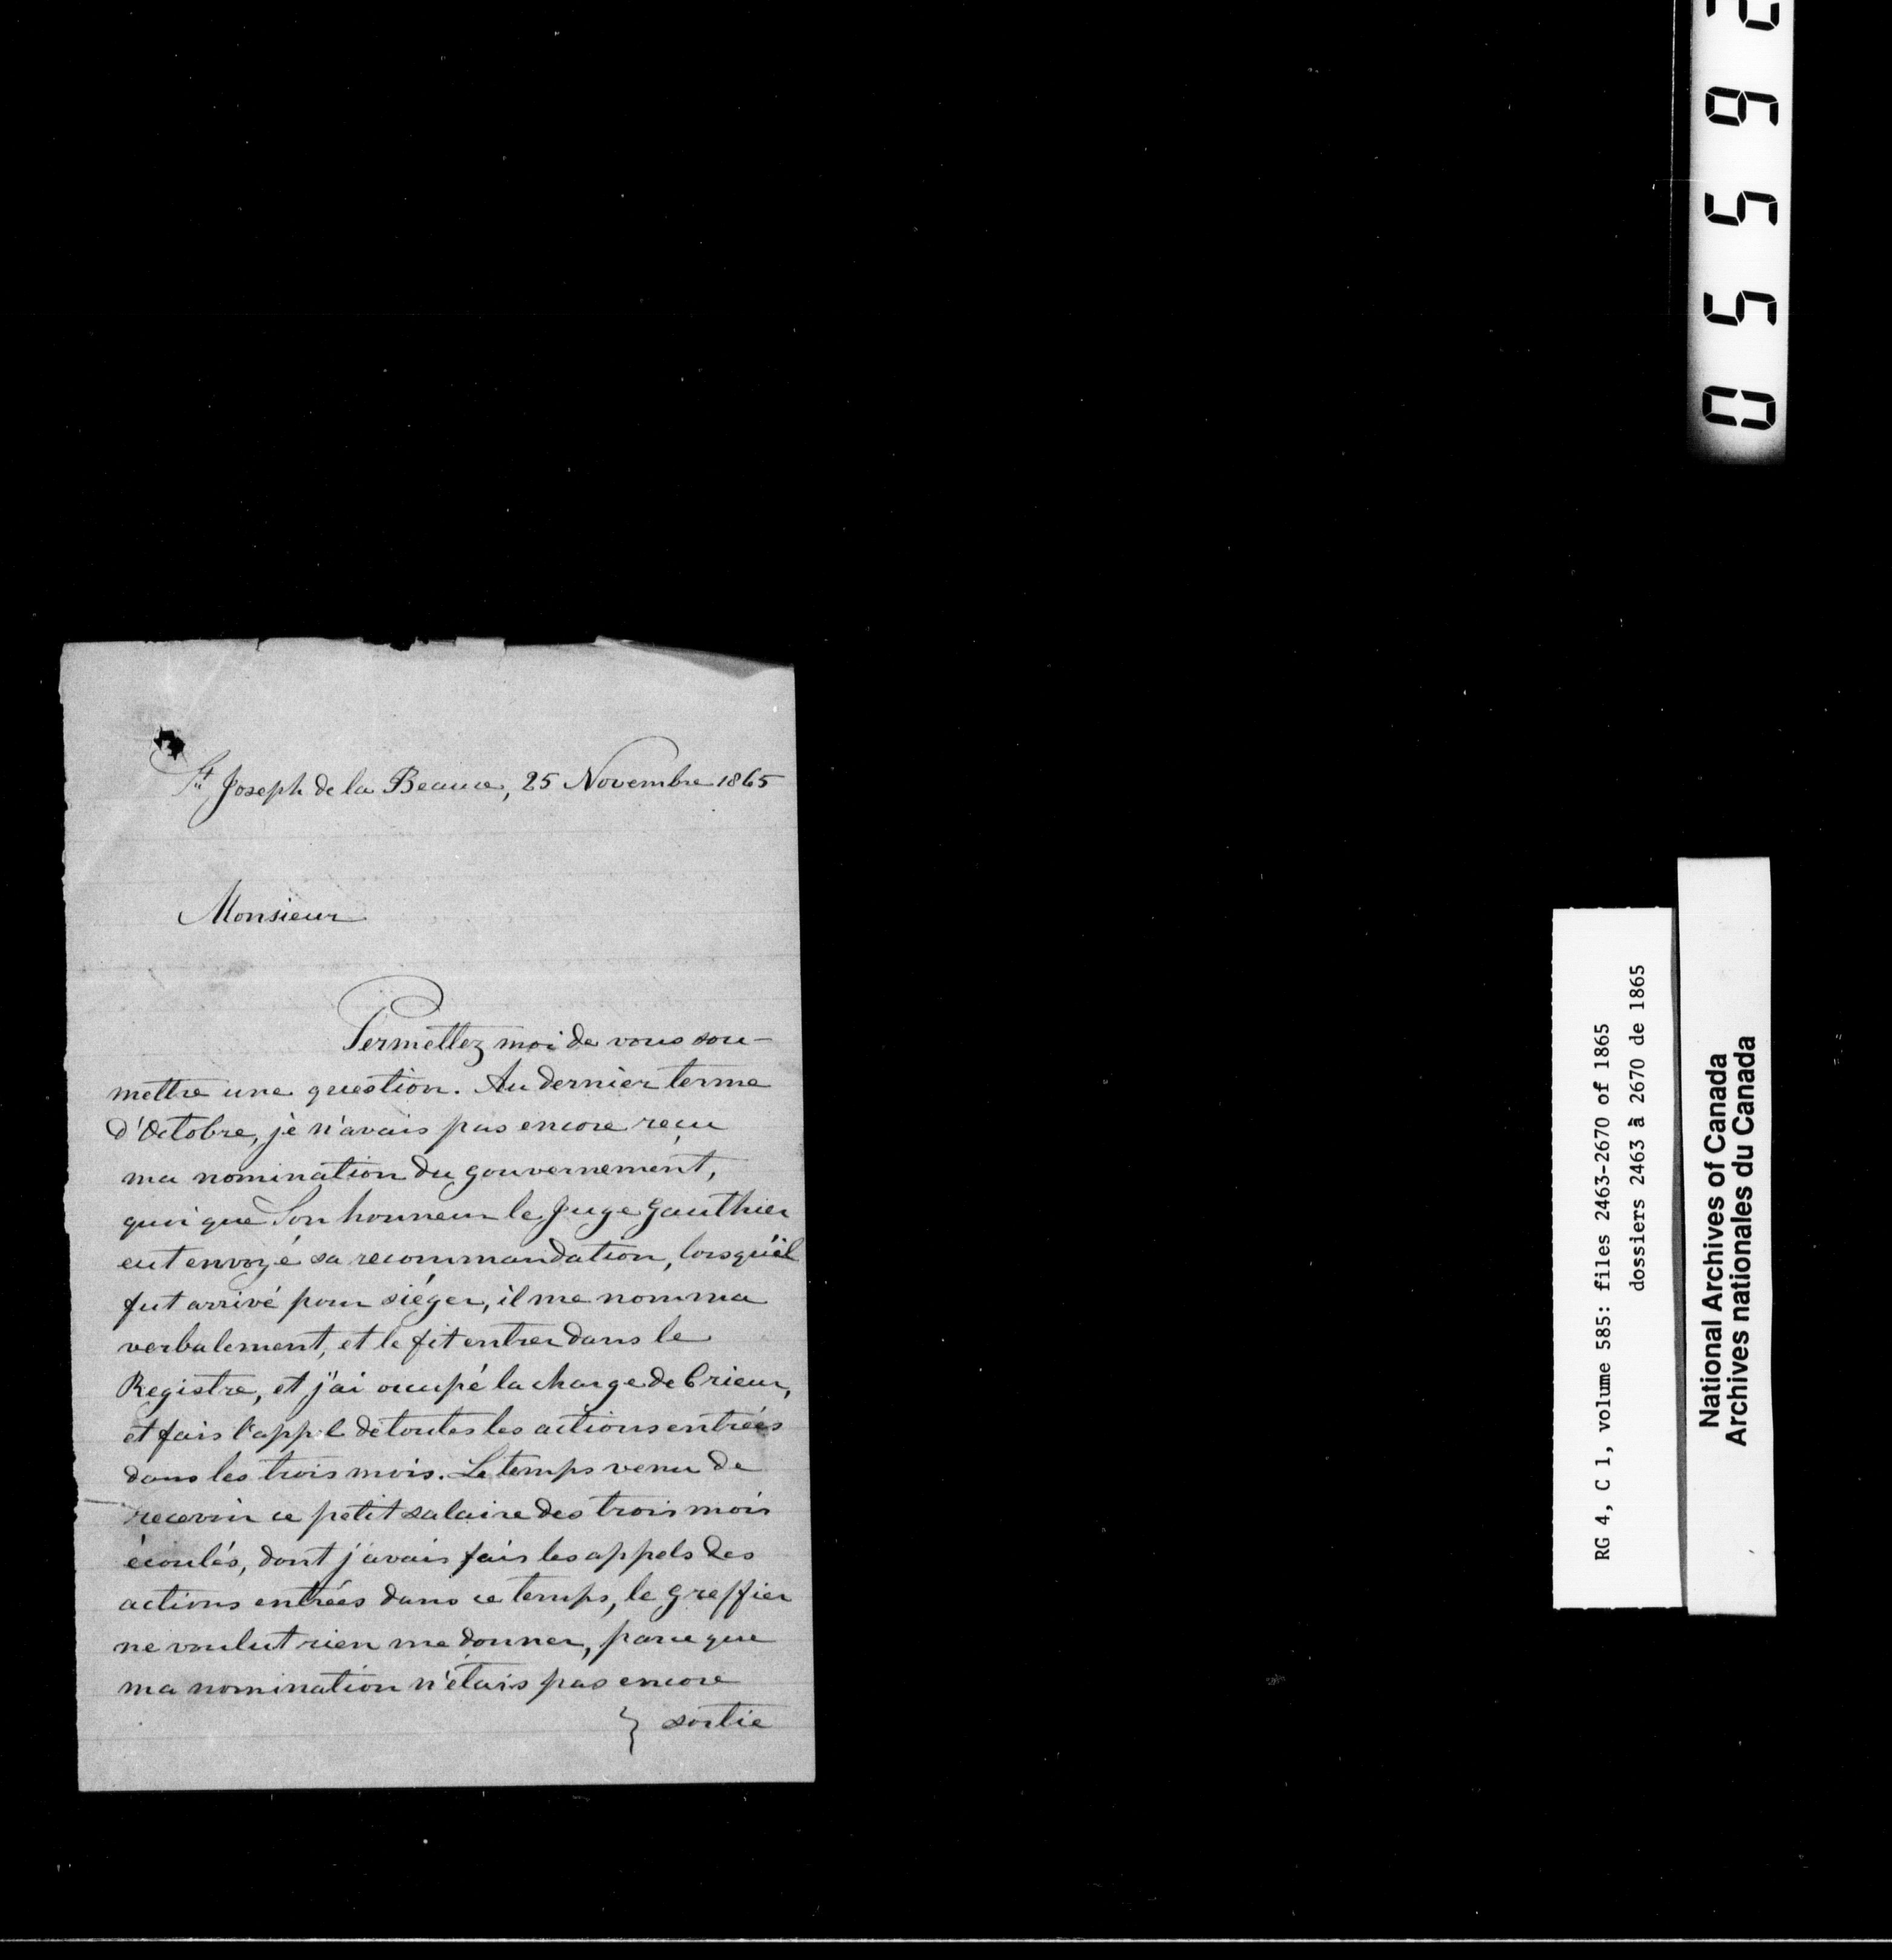 St Joseph de la Beauce, 25 Novembre 1865
Monsieur
Permettez moi de vous sou-
mettre une question. Au dernier terme
d'Octobre, je n'avais pas encore reçu
ma nomination du gouvernement,
quoique Son honneur le Juge Gauthier
eut envoyé sa recommandation, lorsqu'il
fut arrivé pour siéger, il me nomma
verbalement, et le fit entrer dans le
Registre, et j'ai occupé la charge de Crieur,
et fais l'appel de toutes les actions entrées
dans les trois mois. Le temps venu de
recevoir ce petit salaire des trois mois
écoulés, dont j'avais fais les appels des
actions entrées dans ce temps, le Greffier
ne voulut rien me donner, parce que
ma nomination n'étais pas encore
} sortie
2
6
5
5
0
RG 4, C 1, volume 585: files 2463-2670 of 1865
dossiers 2463 à 2670 de 1865
National Archives of Canada
Archives nationales du Canada